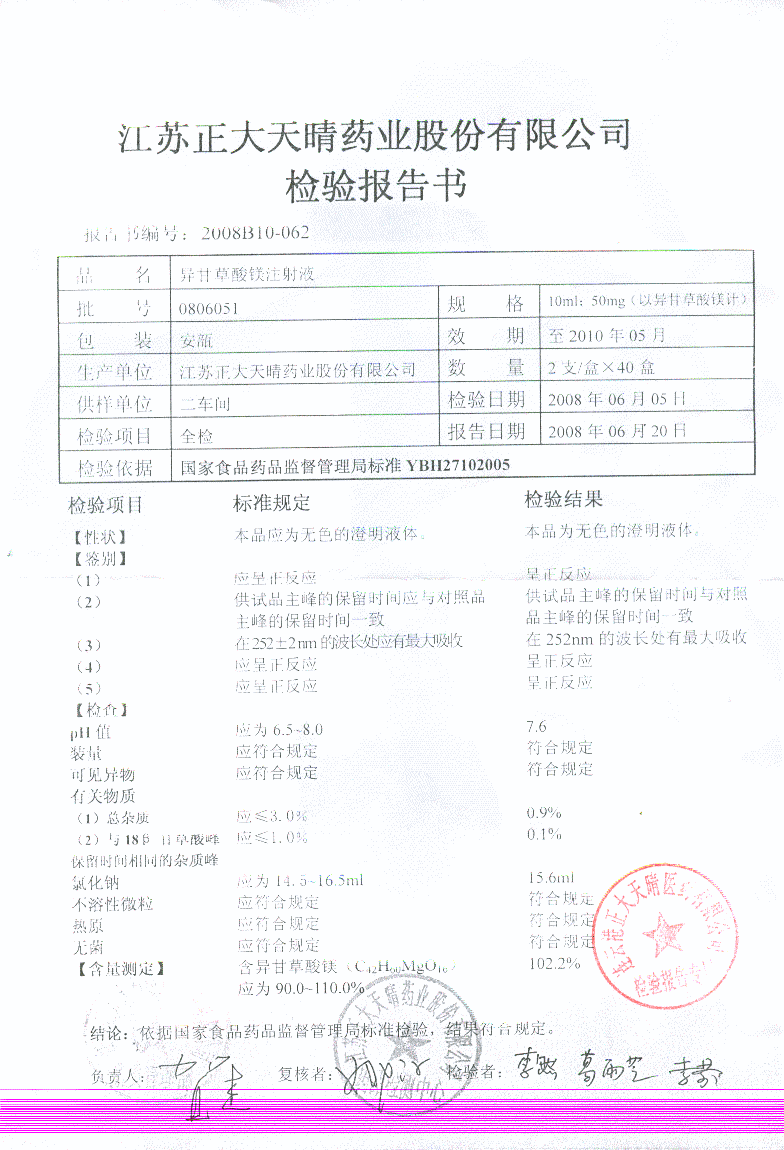 江苏正大天晴药业股份有限公司
检验报告书
报告书编号：2008B10-062
品 名 异甘草酸镁注射液
批 号 0806051 规 格 10ml：50mg（以异甘草酸镁计）
包 装 安瓿 效 期 至 2010 年 05 月
生产单位 江苏正大天晴药业股份有限公司 数 量 2 支/盒×40 盒
供样单位 二车间 检验日期 2008 年 06 月 05 日
检验项目 全检 报告日期 2008 年 06 月 20 日
检验依据 国家食品药品监督管理局标准 YBH27102005
检验项目 标准规定 检验结果
【性状】 本品应为无色的澄明液体。 本品为无色的澄明液体。
【鉴别】
（1） 应呈正反应 呈正反应
（2） 供试品主峰的保留时间应与对照品 供试品主峰的保留时间与对照
主峰的保留时间一致 品主峰的保留时间一致
（3） 在252±2nm的波长处应有最大吸收 在 252nm 的波长处有最大吸收
（4） 应呈正反应 呈正反应
（5） 应呈正反应 呈正反应
【检查】
pH 值 应为 6.5~8.0 7.6
装量 应符合规定 符合规定
可见异物 应符合规定 符合规定
有关物质
（1）总杂质 应≤3.0% 0.9%
（2）与 18β 甘草酸峰 应≤1.0% 0.1%
保留时间相同的杂质峰
氯化钠 应为 14.5~16.5ml 15.6ml
不溶性微粒 应符合规定 符合规定
热原 应符合规定 符合规定
无菌 应符合规定 符合规定
【含量测定】 含异甘草酸镁（C42H60MgO16） 102.2%
应为 90.0~110.0%
连云港正大天晴医药有限公司
检验报告专
结论：依据国家食品药品监督管理局标准检验，结果符合规定。
负责人： 复核者： 检验者：